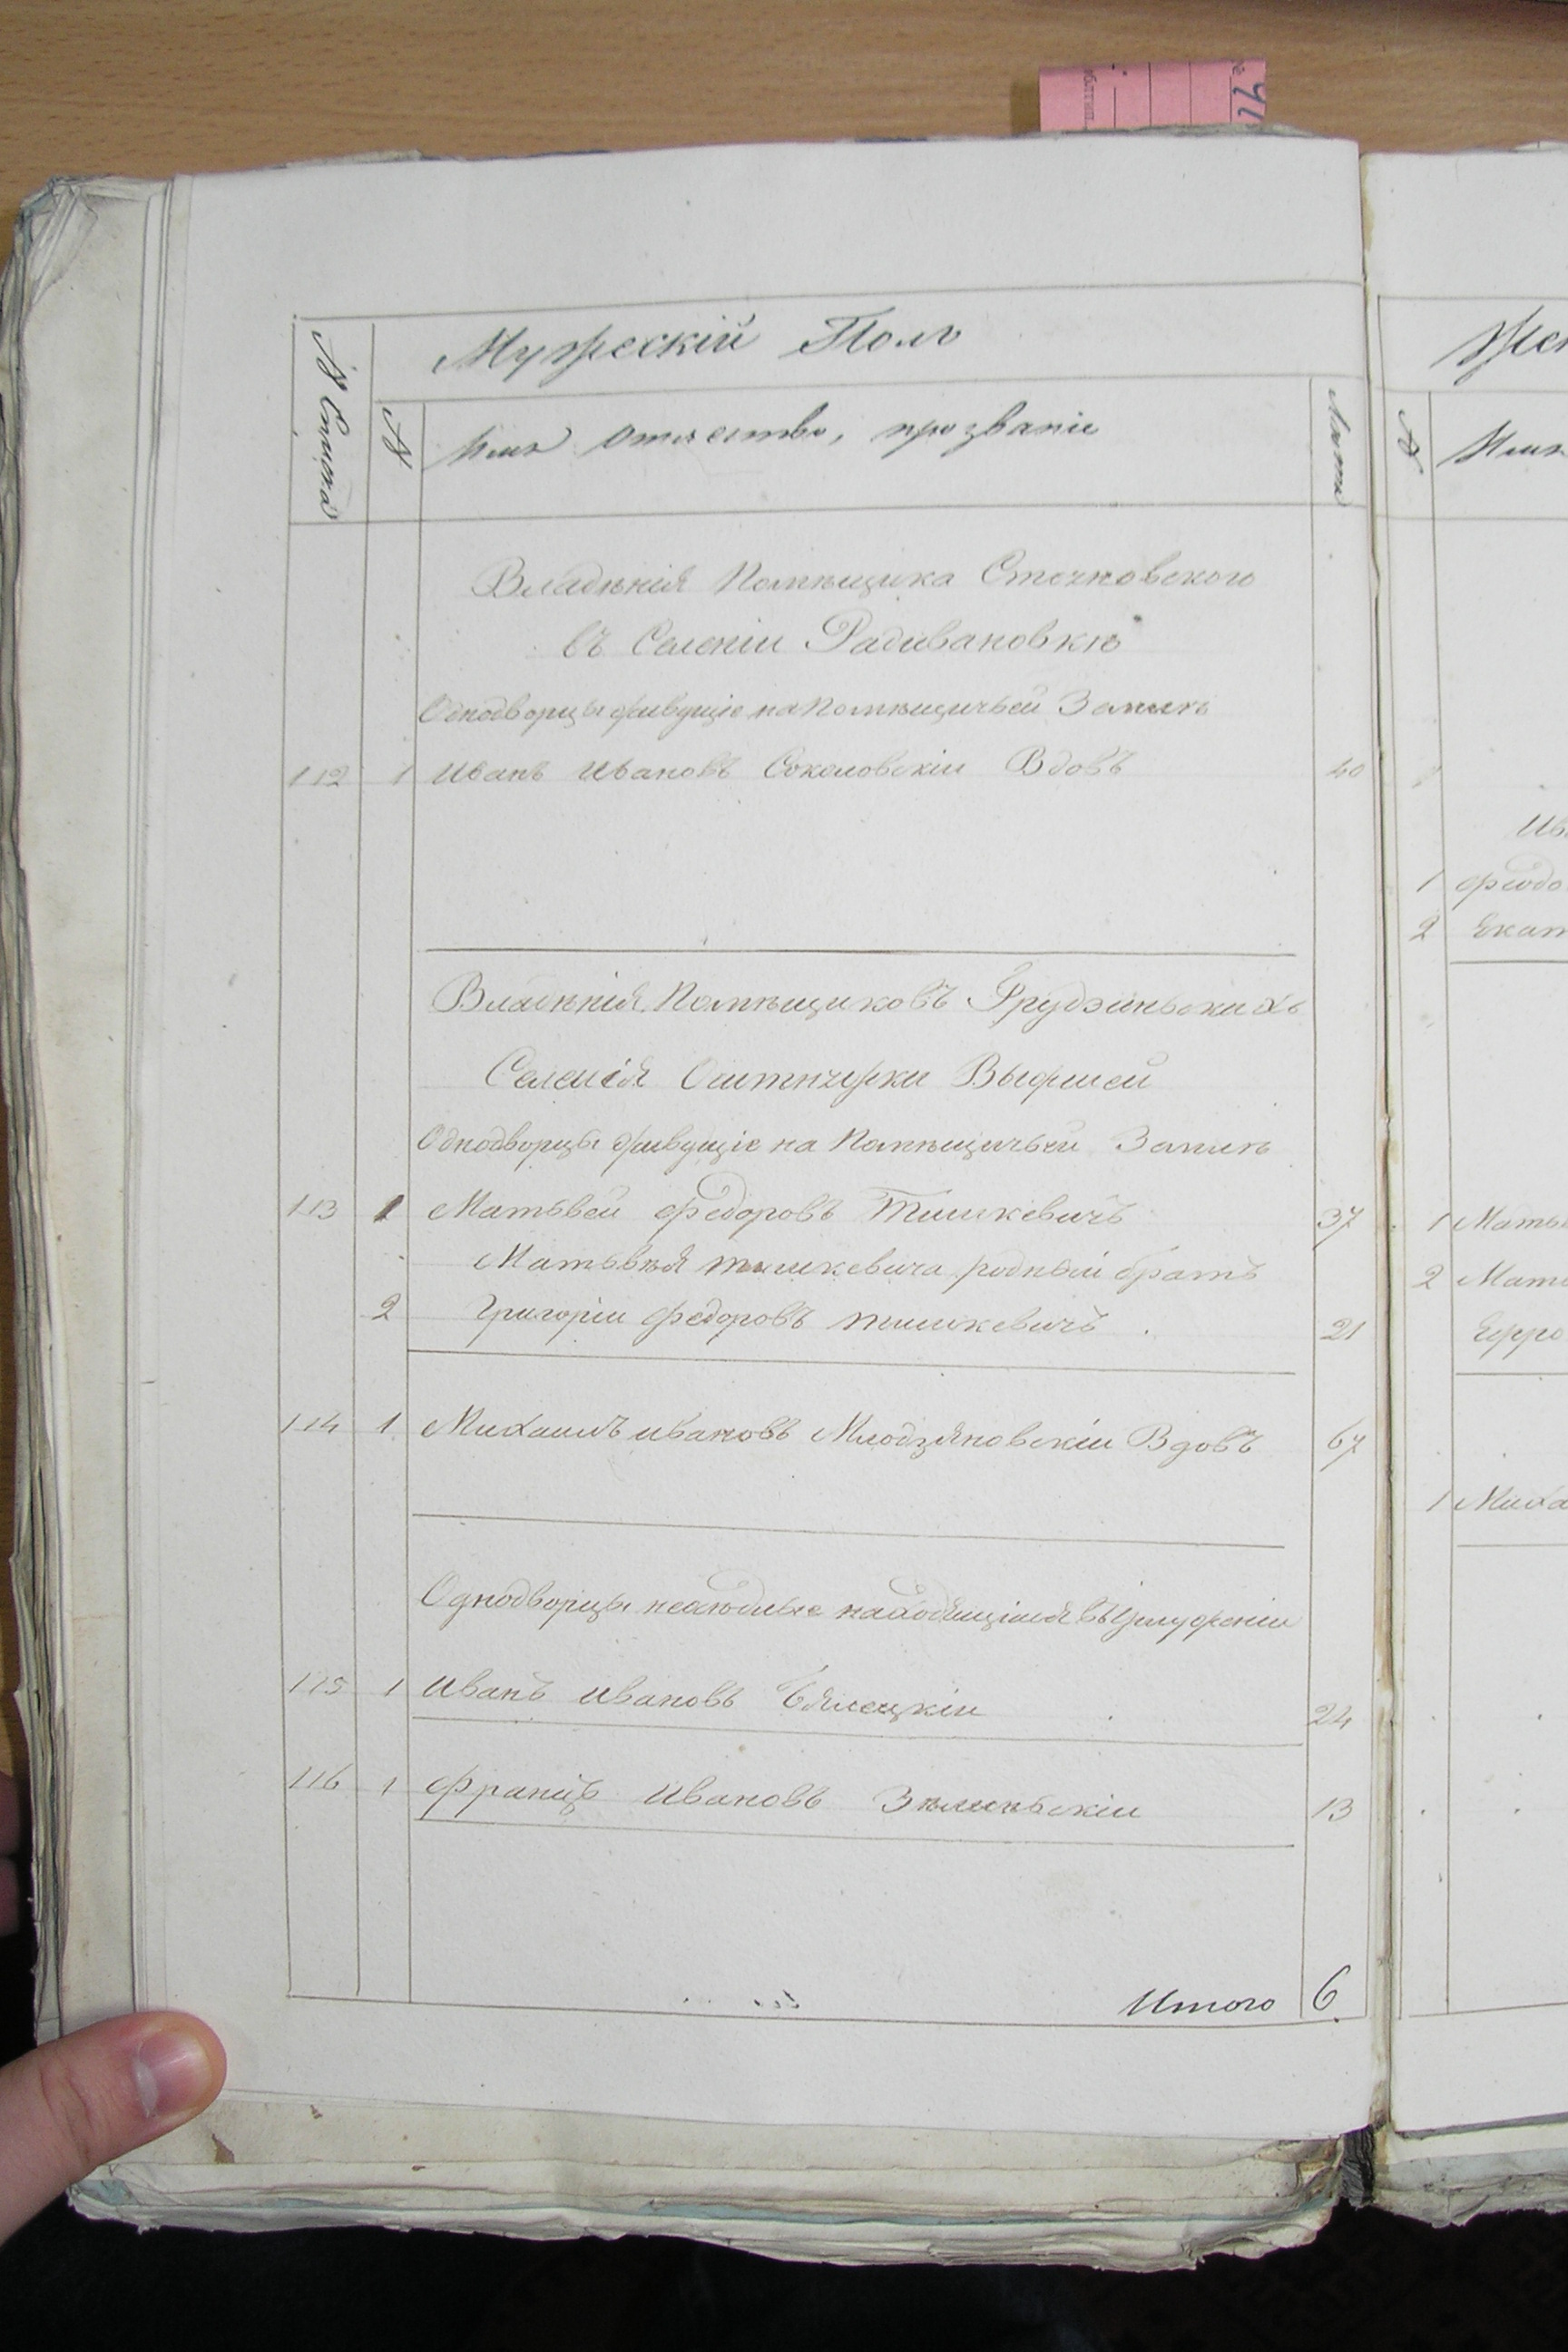 Мужескій Полъ
№ Списка
№
Имя Отчество, прозваніе
Лета
Владенія Помѣщика Стечковского
въ Селеніи Радивановкѣ
Однодворцы живущіе на Помѣщичьей Земле
112 1 Иванъ Ивановъ Соколовскіи Вдовъ 40
Владѣнія Помѣщиковъ Грудзинскихъ
Селенія Оситняжки Выжшей
Однодворцы живущіе на Помѣщичьей Земле
113 1 Матьвей Федоровъ Тишкевичъ 37
Матьвѣя тишкевича родный братъ
2 Григоріи Федоровъ тишкевичъ 21
114 1 Михаилъ ивановъ Млодзяновскіи Вдовъ 67
Однодворцы неаседлые находящіися въ Услуженіи
115 1 Иванъ Ивановъ Бялецкіи 24
116 1 Францъ Ивановъ Зѣлинскіи 13
Итого 6.
Жен
№
Имя
Ив
1 Феодо
2 Екат
1 Матьв
2 Мать
Ефро
1 Миха